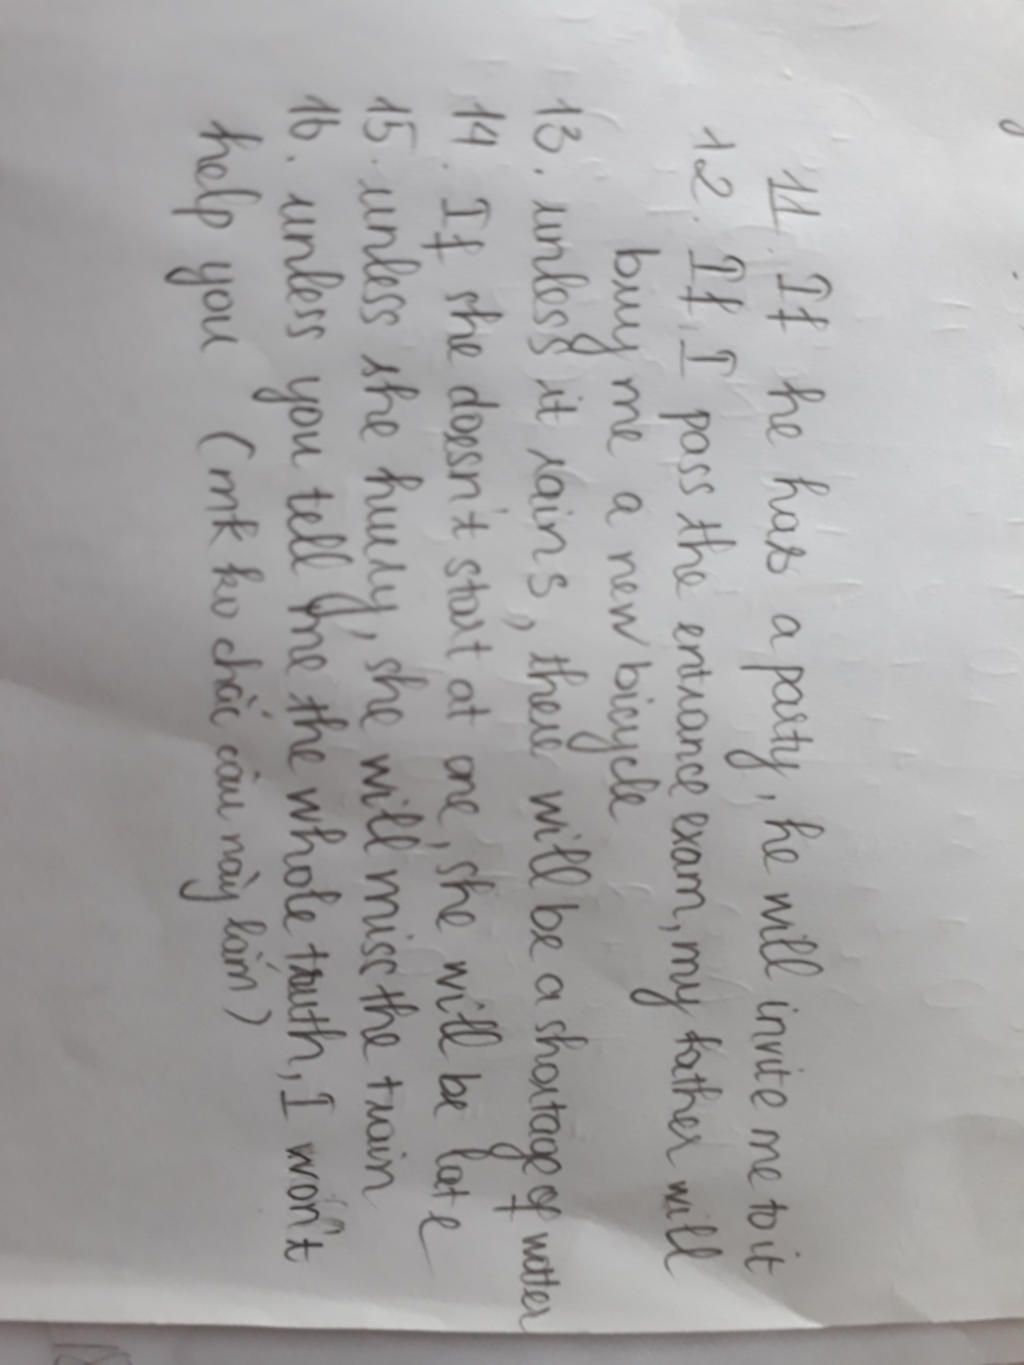 11. If he has a party, he will invite me to it
12. If I pass the entrance exam, my father will
buy me a new bicycle
13. unless it rains, there will be a shortage of watter
14. If she doesn't start at one, she will be late
15. unless she hurry, she will miss the train
16. unless you tell me the whole truth, I won't
help you (mk ko chắc câu này lắm)